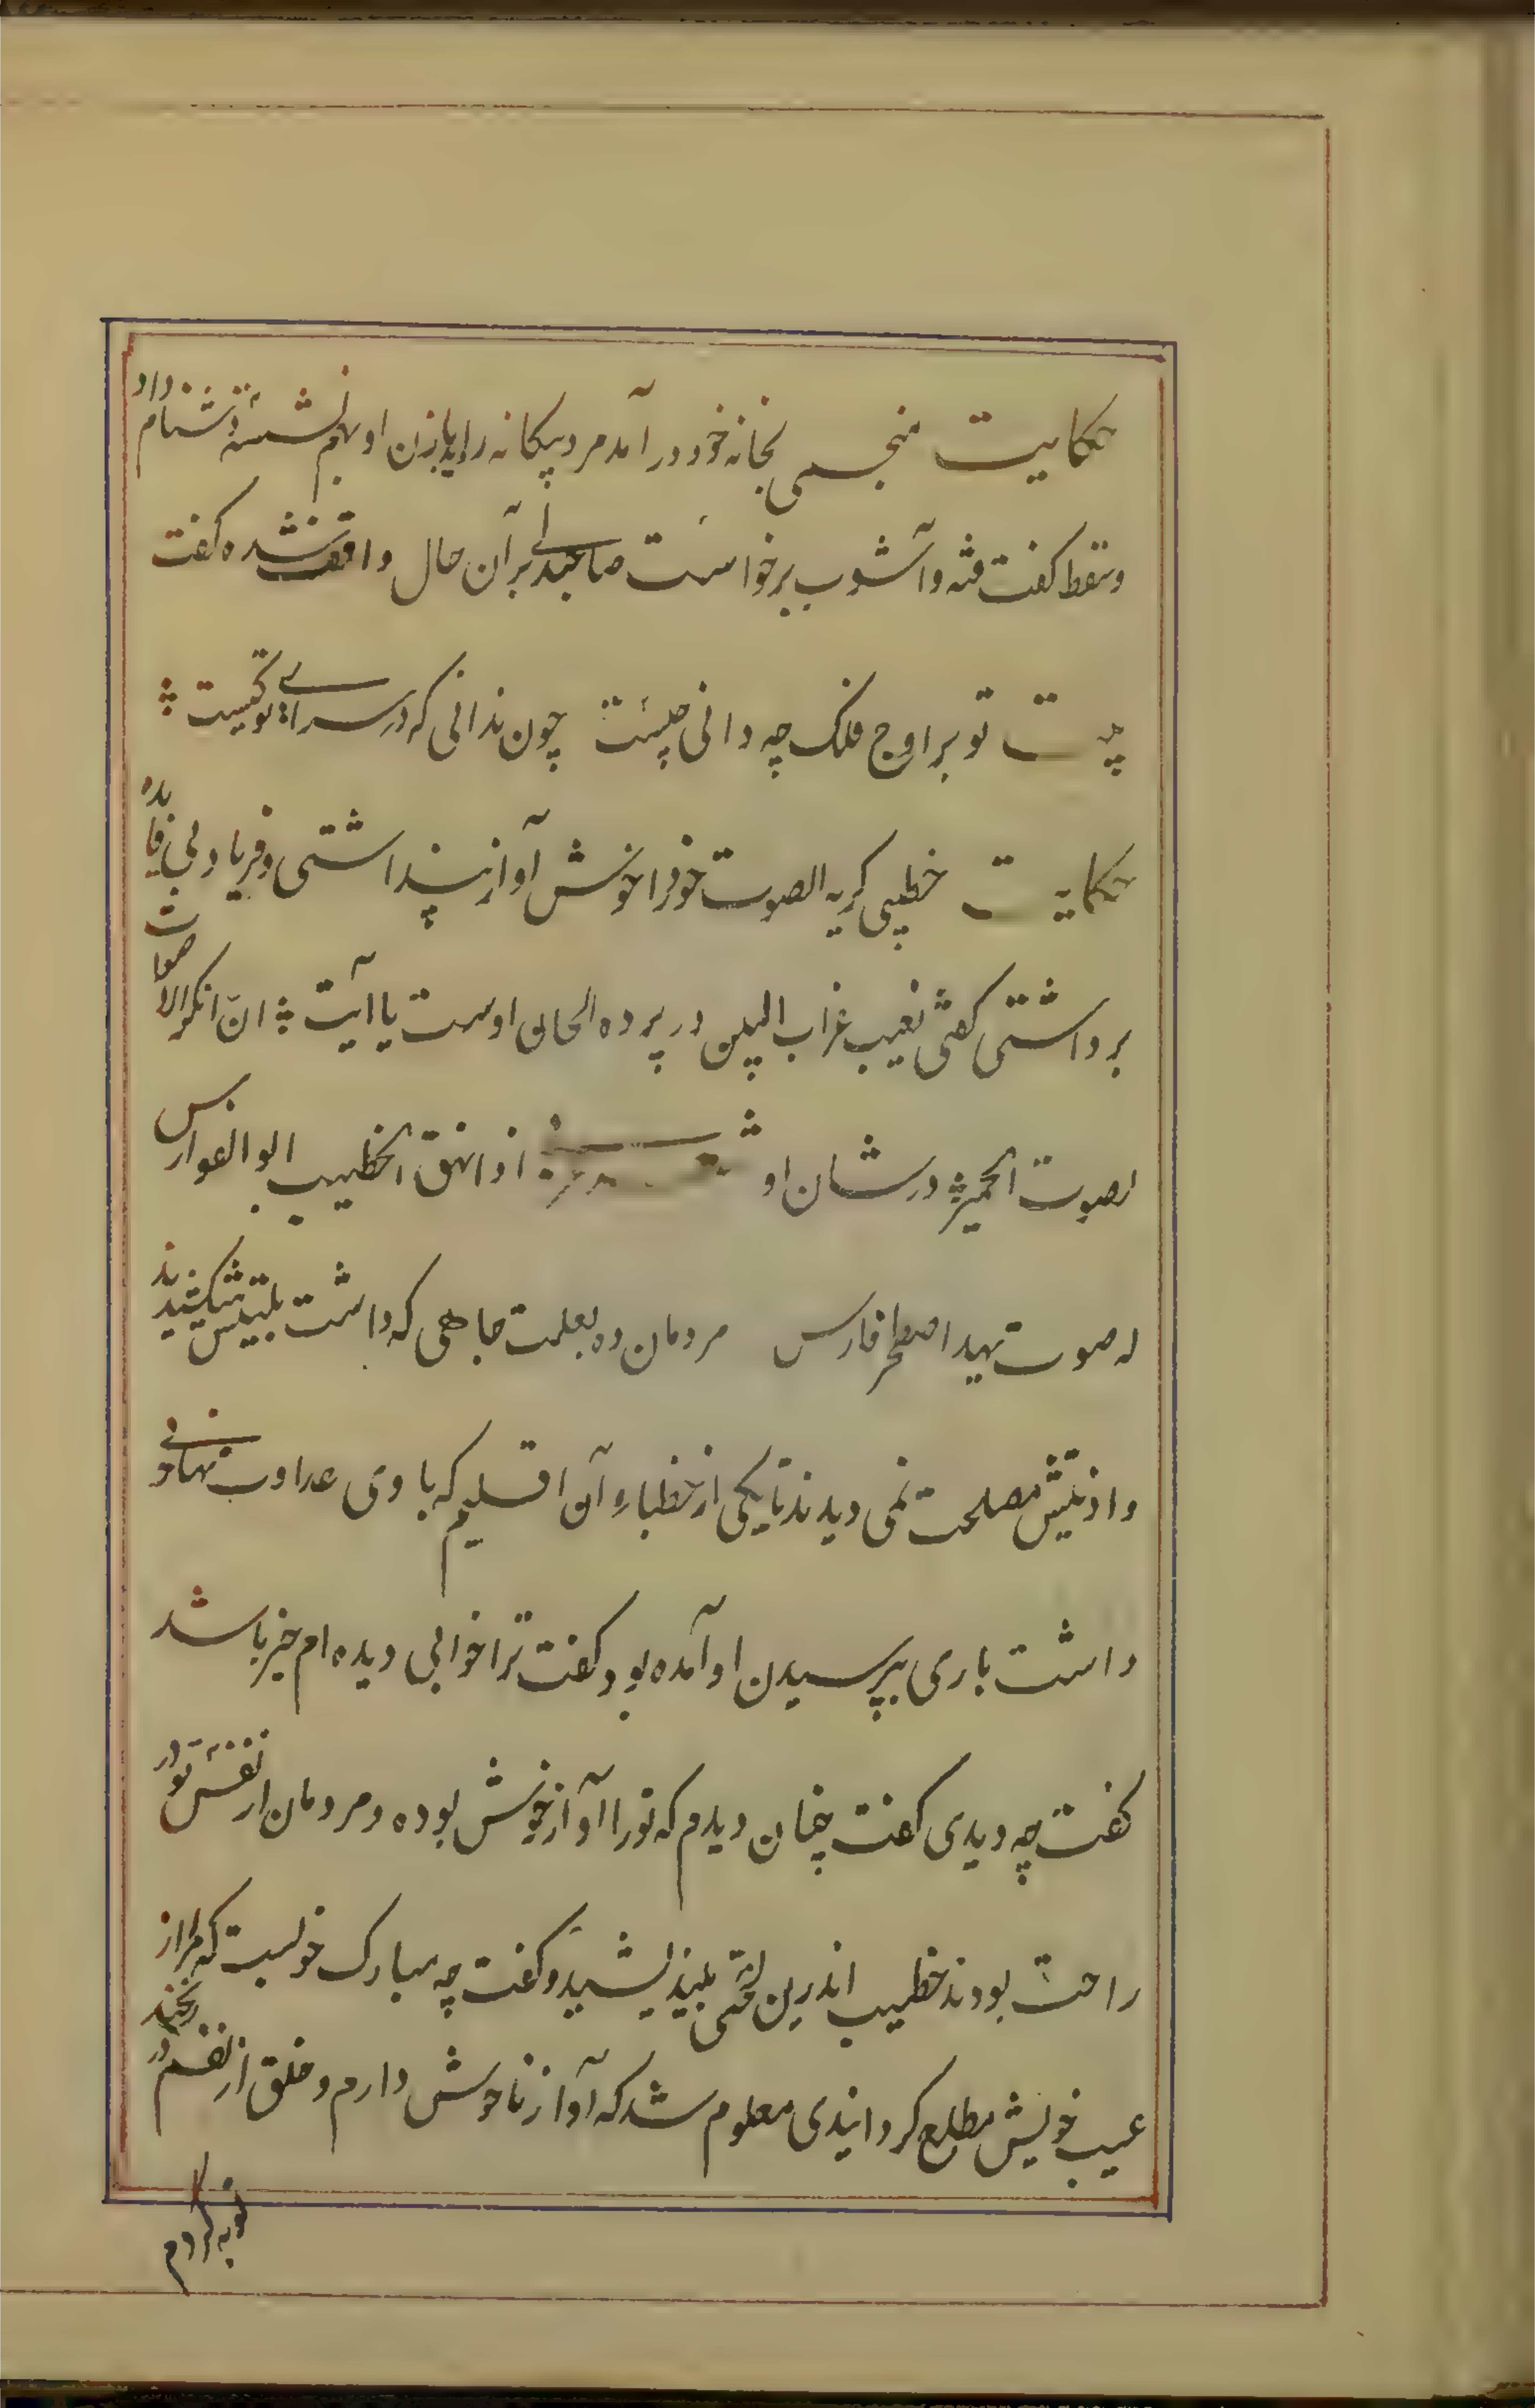 حکایت منجمی بخانه خود در آمد مرد بیکانه را دید بازن او بهم نشسته دشنام داد
وسقط کفت فتنه وآشوب برخواست صاحبدلی برآن حال واقف شده کفت
بیت تو بر اوج فلک چه دانی چیست چون ندانی که در سرای تو کیست
حکایت خطیبی کریه الصوت خود را خوش آواز پنداشتی و فریاد بی فایده
برداشتی کفتی نعیب غراب البین در پرده الحان اوست یا آیت انّ انکر الاصوات
لصوت الحمیر در شان او شعر اذا نهق الخطیب ابو الفوارس
له صوت یهد اصطخر فارس مردمان ده بعلت جاهی که داشت بلیتش میکشیدند
و اذیتش مصلحت نمی دیدند تا یکی از خطباء آن اقلیم که با وی عداوت نهانی
داشت باری بپرسیدن او آمده بود کفت ترا خوابی دیده ام خیر باشد
کفت چه دیدی کفت چنان دیدم که تورا آواز خوش بوده و مردمان از نفست در
راحت بودند خطیب اندرین لختی بیندیشید و کفت چه مبارک خوابست که مرا از
عیب خویش مطلع کردانیدی معلوم شد که آواز ناخوش دارم و خلق از نفسم در رنجند
توبه کردم